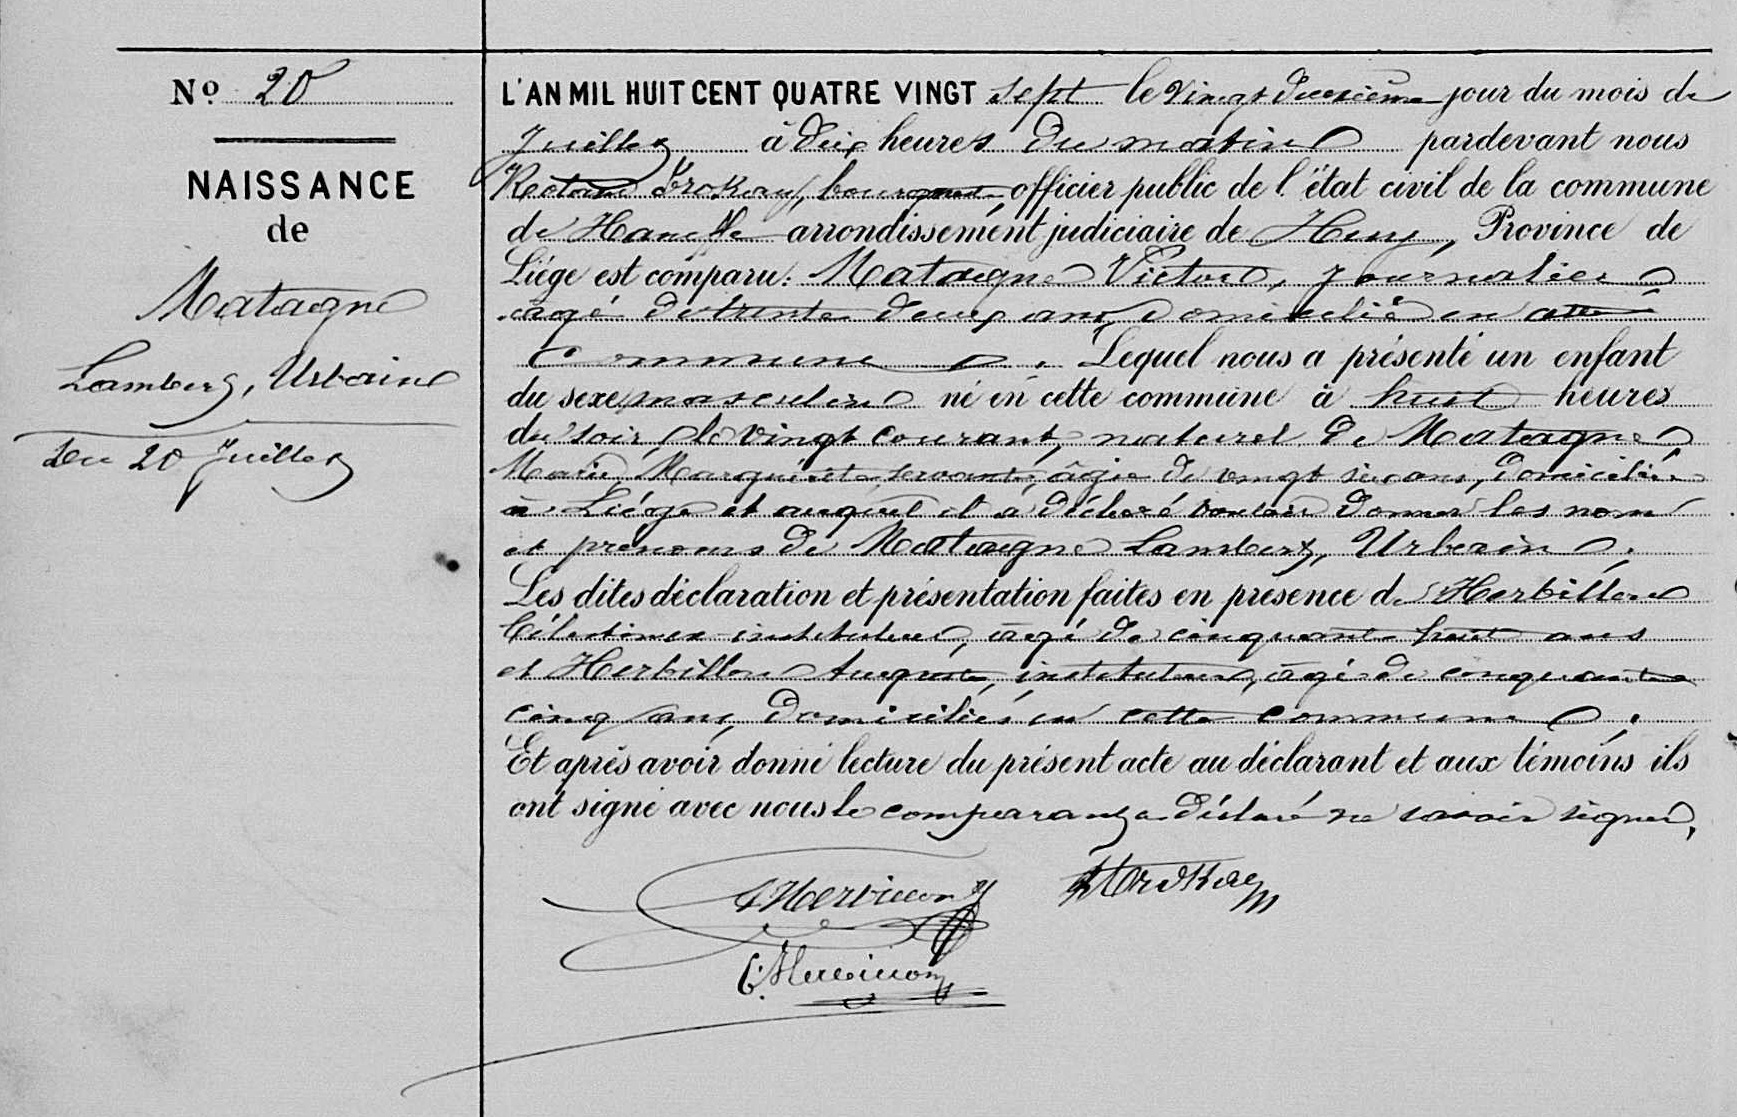 No 20
NAISSANCE
de
Matagne
Lambert, Urbain
Du 20 Juillet
L'AN MIL HUIT CENT QUATRE VINGT sept le vingt deuxième jour du mois de
Juillet à dix heures du matin pardevant nous
bourgmestre officier public de l'état civil de la commune
de arrondissement judiciaire de Huy, Province de
Liége est comparu: Matagne Victor, journalier
agé de trente deux ans, domicilié en cette
commune. Lequel nous a présenté un enfant
du sexe masculin né en cette commune à huit heures
du soir, le vingt courant, naturel de Matagne
Marie, servante, âgée de vingt six ans, domiciliée
à Liége et auquel il a déclaré vouloir donner les nom
et prénoms de Matagne Lambert, Urbain.
Les dites déclaration et présentation faites en présence de Herbillon
instituteur, âgé de cinquante huit ans
et Herbillon Auguste, instituteur, âgé de cinquante
cinq ans, domiciliés en cette commune.
Et après avoir donné lecture du présent acte au déclarant et aux témoins ils
ont signé avec nous le comparant a déclaré ne savoir signer,
AHerbillon
C. Herbillon